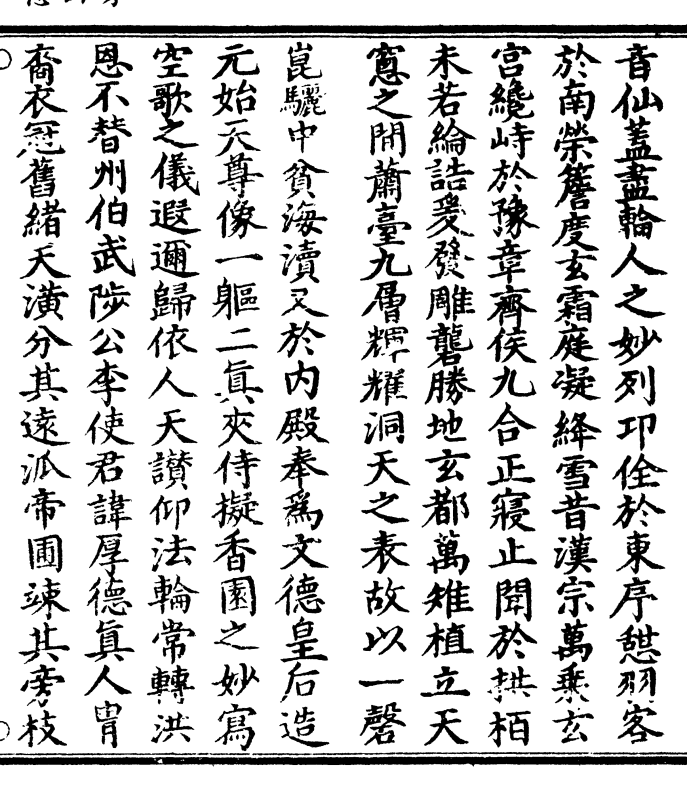 音仙蓋盡輪人之妙列卭佺於東序憇羽客
於南榮簷度玄霜庭凝絳雪昔漢宗萬乘玄
宮纔峙於豫章齊侯九合正寢止聞於拱栢
未若綸誥爰發雕礱勝地玄都萬雉植立天
窻之間蕭臺九層輝耀洞天之表故以一磬
崑驪中貧海瀆又於内殿奉爲文德皇后造
元始天尊像一軀二眞夾侍擬香園之妙寫
空歌之儀遐邇歸依人天讃仰法輪常轉洪
恩不替州伯武陟公李使君諱厚德眞人胄
裔衣冠舊緒天潢分其遠泒帝圃竦其旁枝